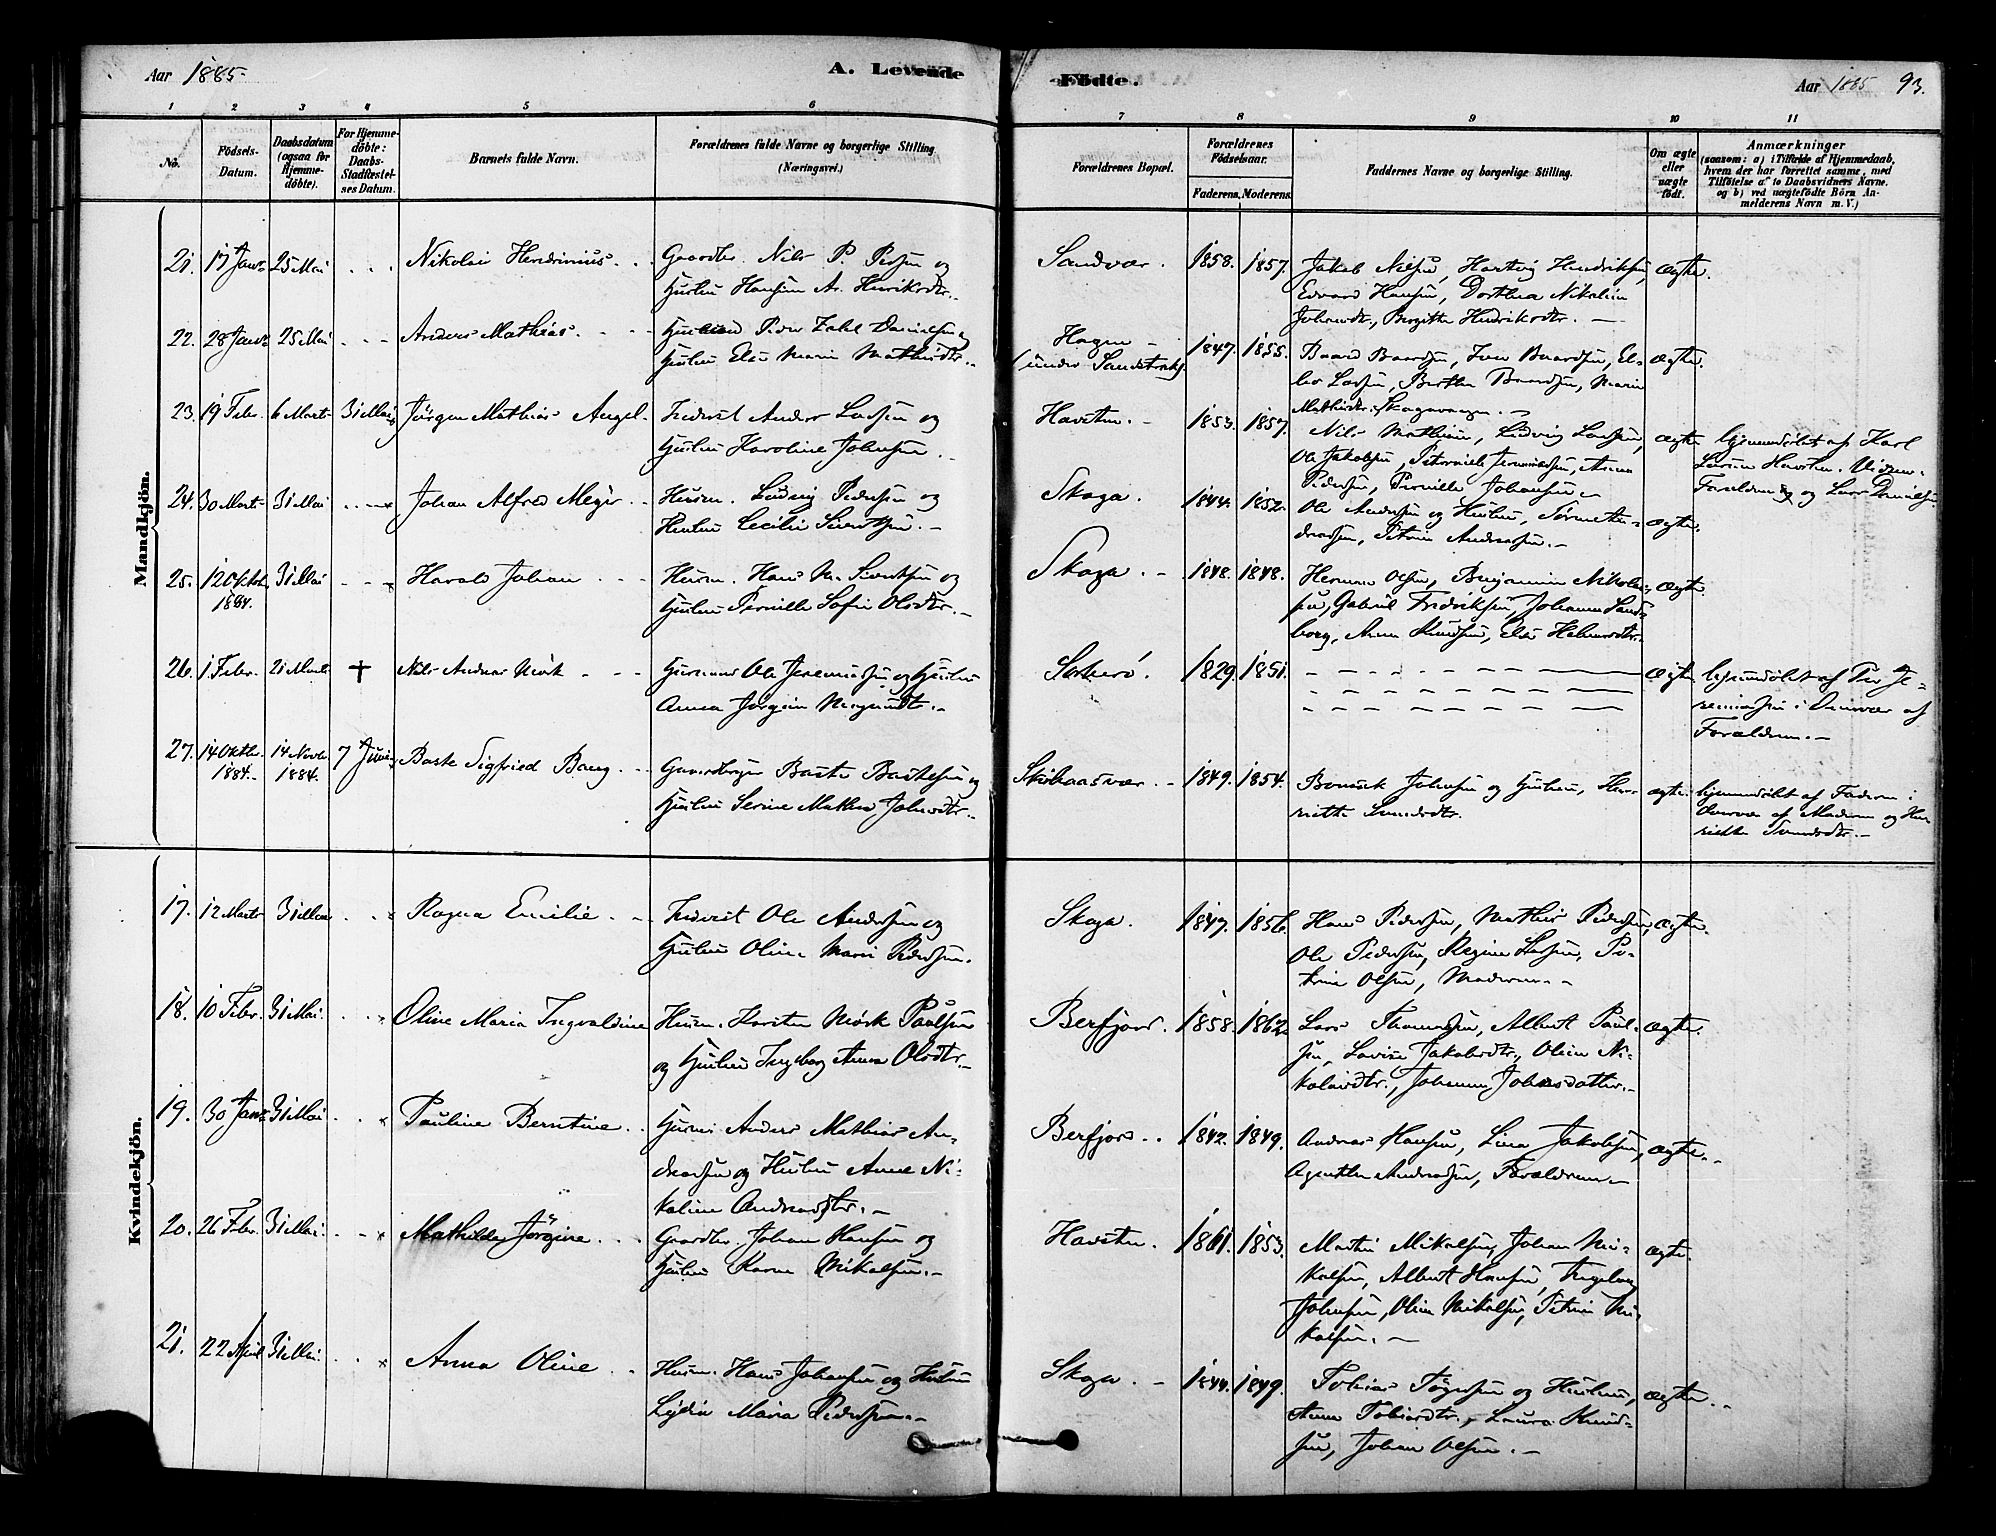 Aar 1885.
A. Levende
Födte.
Aar 1885 93.
1 2 3 4 5 6 7 8 9 10 11
No.
Födsels-
Datum.
Daabsdatum
(ogsaa for
Hjemme-
döbte).
For Hjemme-
döbte:
Daabs-
Stadfæstel-
ses Datum.
Barnets fulde Navn.
Forældrenes fulde Navne og borgerlige Stilling
(Næringsvei.)
Forældrenes Bopæl.
Forældrenes
Födselsaar.
Faderens. Moderens.
Faddernes Navne og borgerlige Stilling.
Om ægte
eller
uægte
født.
Anmærkninger
(saasom: a) i Tilfælde af Hjemmedaab,
hvem der har forrettet samme, med
Tilföielse af to Daabsvidners Navne.
og b) ved uægtefödte Börn An-
melderens Navn m. V.)
Mandkjön.
21. 17 Janr 25 Mai Nikolai Hendrinius Gaardbr. Nils P. Pedsen og
Hustru Hansine A. Henriksdtr.
Sandvær. 1858. 1857. Jakob Nilsen, Hartvig Hendriksen, ægte.
Edvard Hansen, Dorthea Nikoline
Johansdtr., Birgitte Hendriksdtr.
22. 28 Janr 25 Mai Anders Mathias Husmand Peder Zahl Danielsen og
Hustru Else Marie Mathisdtr.
Hagen
(under Sandstrak). 1847. 1855. Baard Baardsen, Iver Baardsen, El-
ler Larsen, Berthe Baardsen, Marie ægte.
Mathisdtr. Skogsvaagen.
23. 19 Febr. 6 Marts 31 Mai Jörgen Mathias Angel. Inderst Anders Larsen og
Hustru Karoline Johnsen.
Havsten. 1853. 1857. Nils Mathisen, Ludvig Larsen, ægte
Ole Jakobsen, Petornelle Jeremiassen, Anna
Pedersen, Pernille Johansen
hjemmedöbt af Karl
Larsen Havsten. Vidner:
Forældrene og Lars Danielsen.
24. 30 Marts 31 Mai Johan Alfred Meyer Husm. Ludvig Pedersen og
Hustru Cecilie Sivertsen.
Skoga. 1844. 1852. Ole Andersen og Hustru, Sörine An-
dreassen, Petrine Andreassen. ægte.
25. 12 Oktbr. 1884. 31 Mai Harald Johan Husm. Hans M. Sivertsen og
Hustru Pernille Sofie Olsdtr.
Skoga. 1848. 1848. Herman Olsen, Benjamin Nikolai-
sen, Gabriel Fredriksen, Johanna Sand-
borg, Anna Knudsen, Else Helmersdtr. ægte.
26. 1 Febr. 21 Marts + Nils Andreas Mörk Husmand Ole Jeremiassen og Hustru
Anna Jörgine Mogensdtr.
1829. 1851. ægte hjemmedöbt af Per Je-
remiassen i Overvær af
Forældrene.
27. 14 Oktbr. 1884. 14 Novbr. 1884. 7 Juni Baste Sigfried Bang Gaardbruger Baste Bastesen og
Hustru Serine Mathea Johnsdtr.
Skibaasvær. 1849. 1854. Johnsen og Hustru, Hen-
riette Svendsdtr. ægte. hjemmedöbt af Faderen i
Overvær af Moderen og Hen-
riette Svendsdtr.
Kvindekjön.
17. 12 Marts 31 Mai Ragna Emilie Inderst Ole Andersen og
Hustru Oline Marie Pedersen.
Skoga. 1847. 1856. Hans Pedersen, Mathis Pedersen, ægte.
Ole Pedersen, Regine Larsen, Pe-
trine Olsen, Moderen.
18. 10 Febr. 31 Mai. Oline Maria Ingvaldine Husm. Karsten Mörk Paulsen
og Hustru Ingeborg Anna Olsdtr.
Berfjord. 1858. 1862. Lars Thomassen, Albert Paul-
sen, Lovise Jakobsdtr., Oline Ni-
kolaisdtr., Johanna Johnsdatter. ægte.
19. 30 Janr 31 Mai Pauline Berntine Husm. Anders Mathias An-
dreassen og Hustru Anne Ni-
koline Andreasdtr.
Berfjord. 1842. 1849. Andreas Hansen, Lina Jakobsen, ægte.
Agenthe Andreassen, Forældrene.
20. 26 Febr. 31 Mai. Mathilde Jörgine Gaardbr. Johan Hansen og
Hustru Karen Mikalsen.
Havsten. 1861. 1853. Martin Mikalsen, Johan Mi-
kalsen, Albert Hansen, Ingeborg
Johnsen, Oline Mikalsen, Petrine Mi-
kalsen. ægte.
21. 22 April 31 Mai. Anna Oline Husm. Hans Johansen og Hustru
Lydia Maria Pedersen.
Skoga. 1844. 1849. Tobias Tögersen og Hustru, ægte.
Anna Tobiasdtr., Laura Knud-
sen, Johan Olsen.